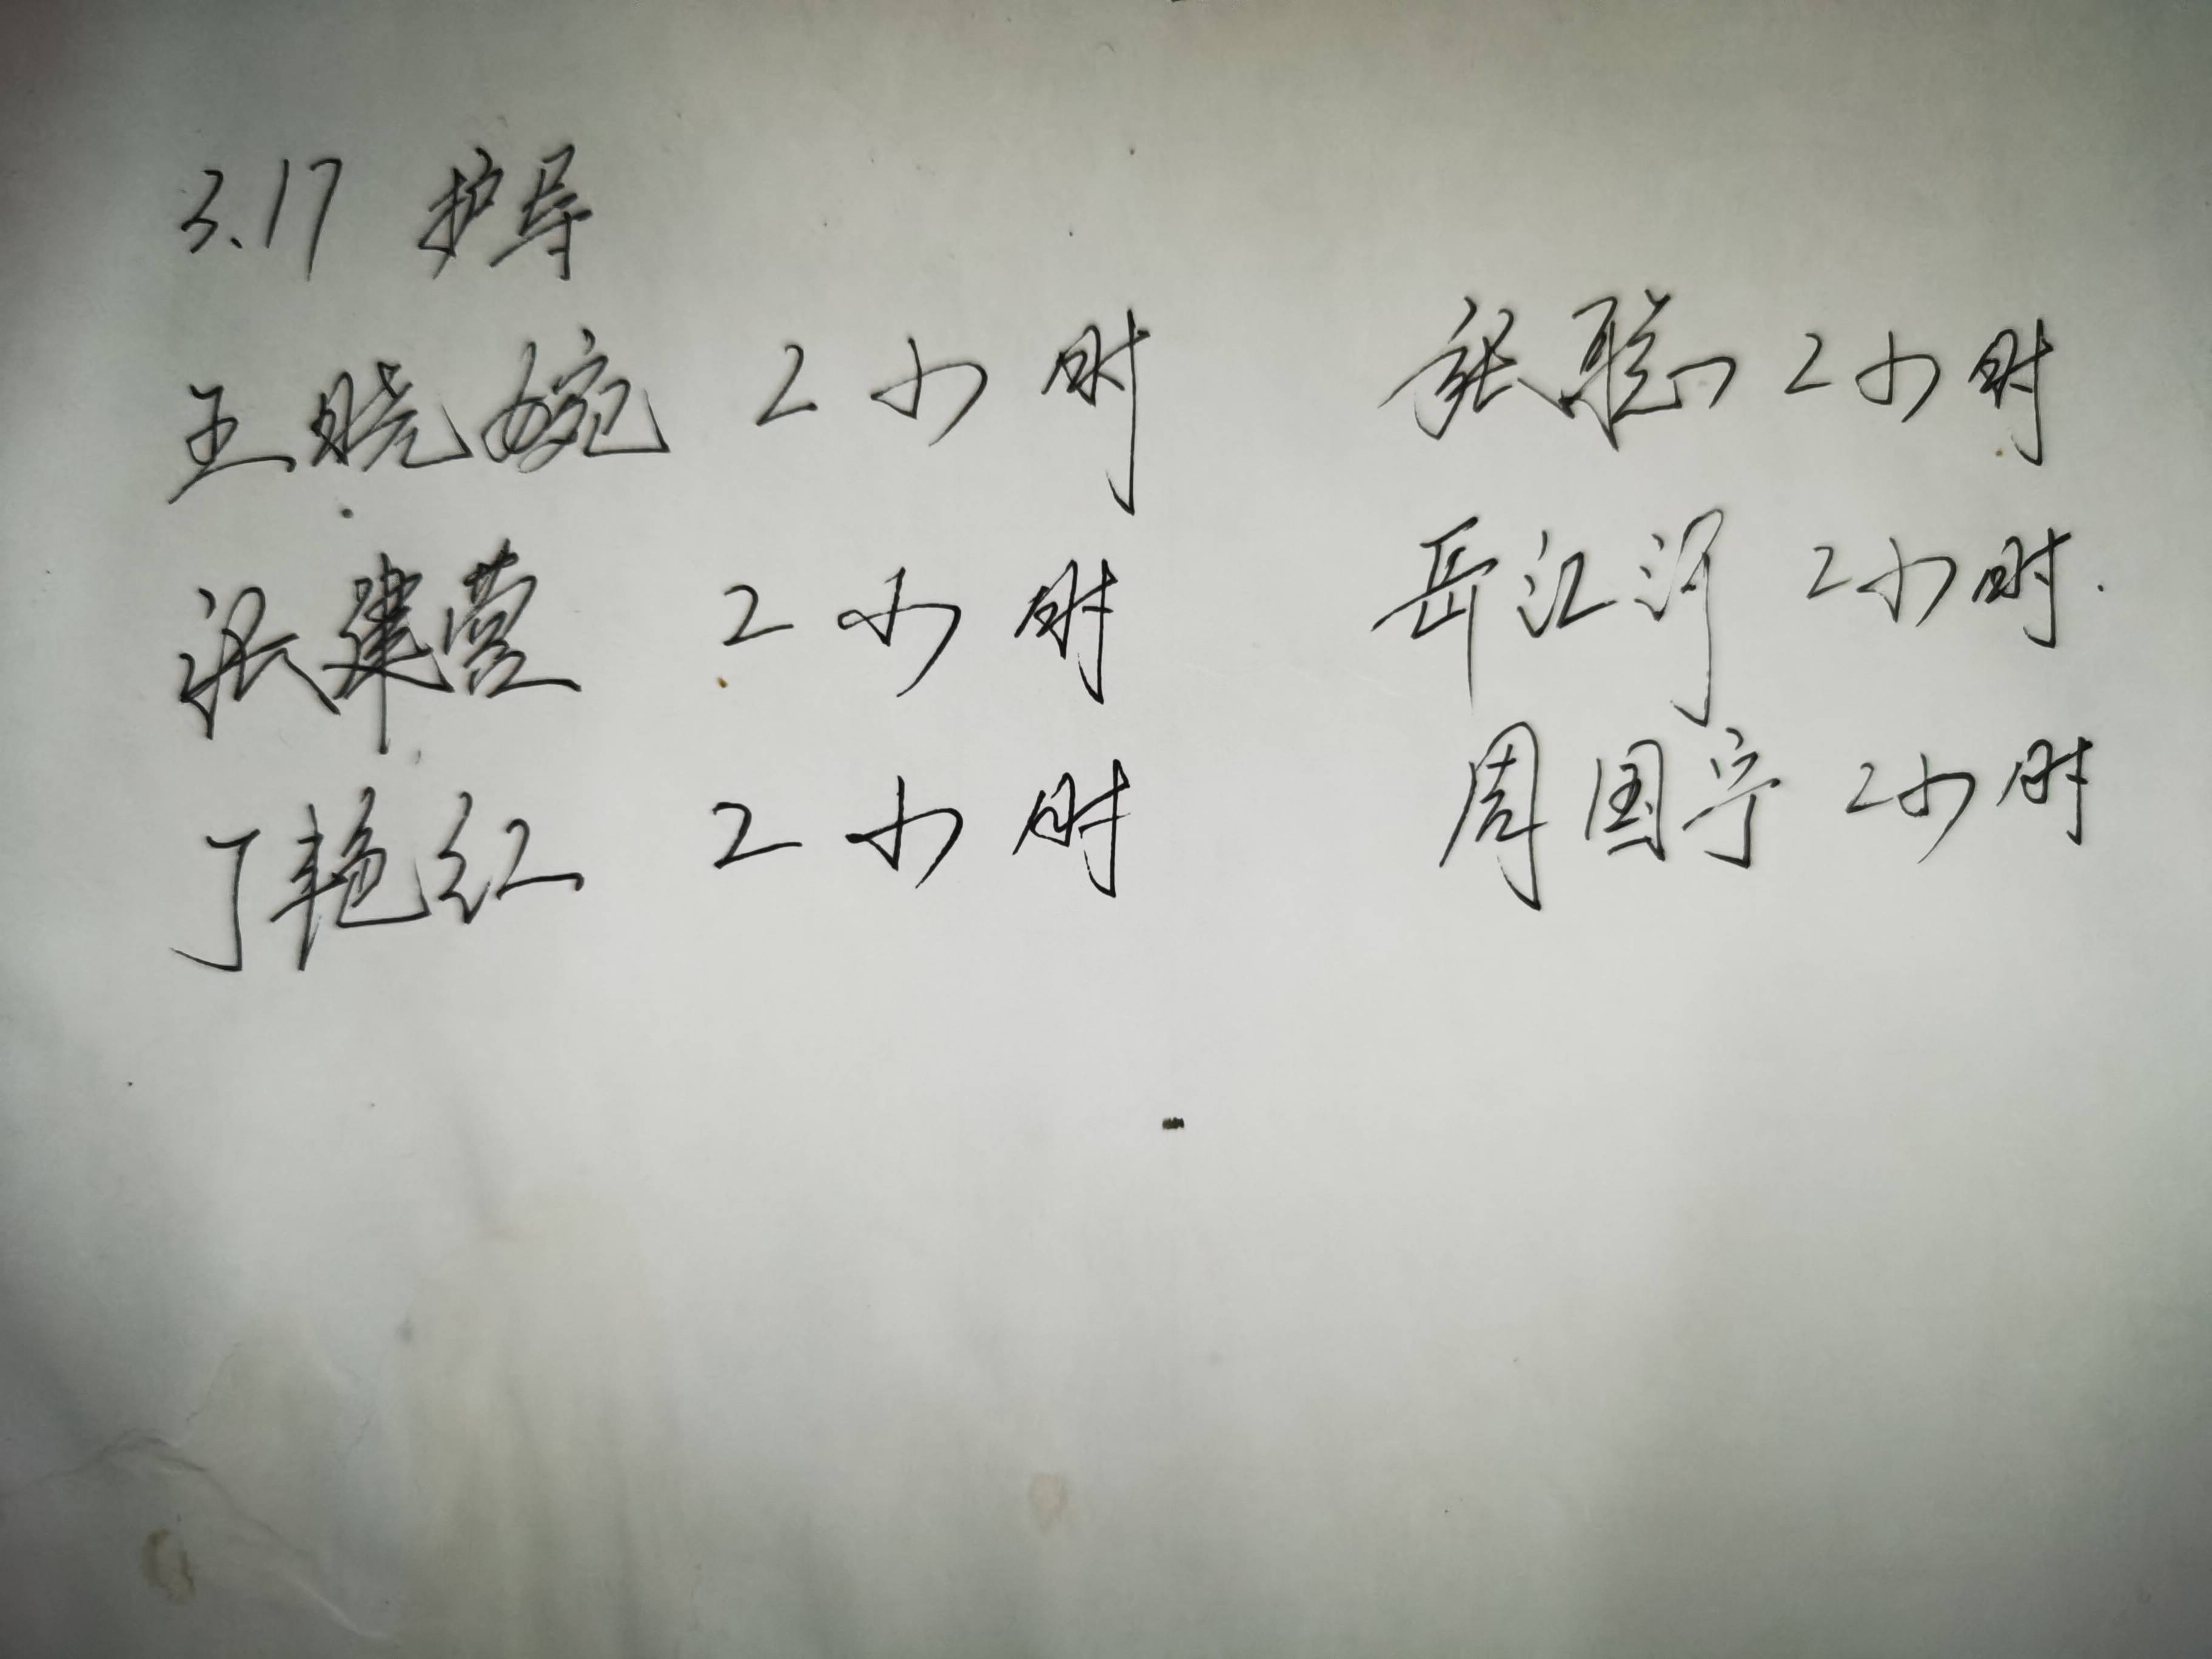 3.17 护导
王晓婉 2小时
张建营 2小时
丁艳红 2小时
张聪 2小时
岳江河 2小时.
周国宁 2小时